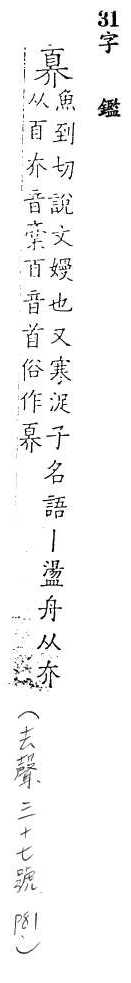 31 字鑑
奡
魚到切說文嫚也又寒浞子名語丨盪舟从夰
从百夰音槀百音首俗作奡
(去聲三十七號 P81)